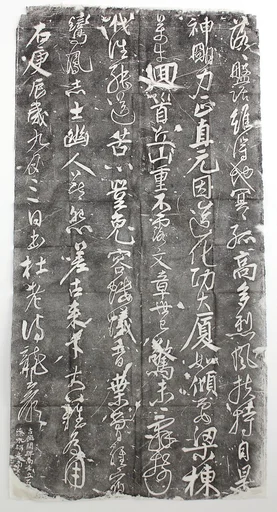 落々盤踞雖得地冥々孤高多烈風扶持自是
神朙力正直元因造化功大厦如傾要梁棟
萬牛迴首丘山重不露文章世已驚未辭剪
伐誰能送苦心豈免容螻蟻香葉曾經宿
鸞鳳志士幽人莫怨嗟古來材大難為用
右庚辰歲九月三日書杜老詩龍